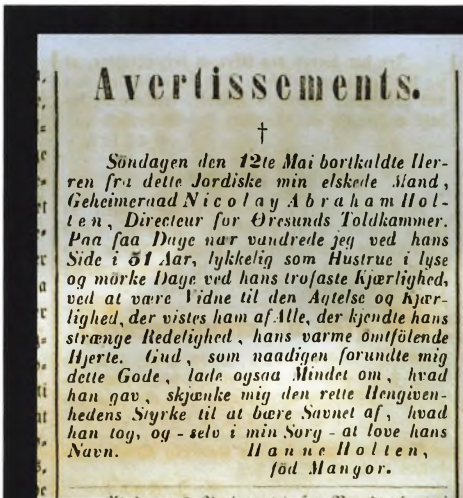 Avertissements.
†
Söndagen den 12te Mai bortkaldte Her-
ren fra dette Jordiske min elskede Mand,
Geheimeraad Nicolay Abraham Hol-
ten, Directeur for Øresunds Toldkammer.
Paa faa Dage nær vandrede jeg ved hans
Side i 51 Aar, lykkelig som Hustrue i lyse
og mörke Dage ved hans trofaste Kjærlighed,
ved at være Vidne til den Agtelse og Kjær-
lighed, der vistes ham af Alle, der kjendte hans
strænge Redelighed, hans varme ömtfölende
Hjerte. Gud, som naadigen forundte mig
dette Gode, lade ogsaa Mindet om, hvad
han gav, skjænke mig den rette Hengiven-
hedens Styrke til at bære Savnet af, hvad
han tog, og - selv i min Sorg - at love hans
Navn. Hanne Holten,
föd Mangor.